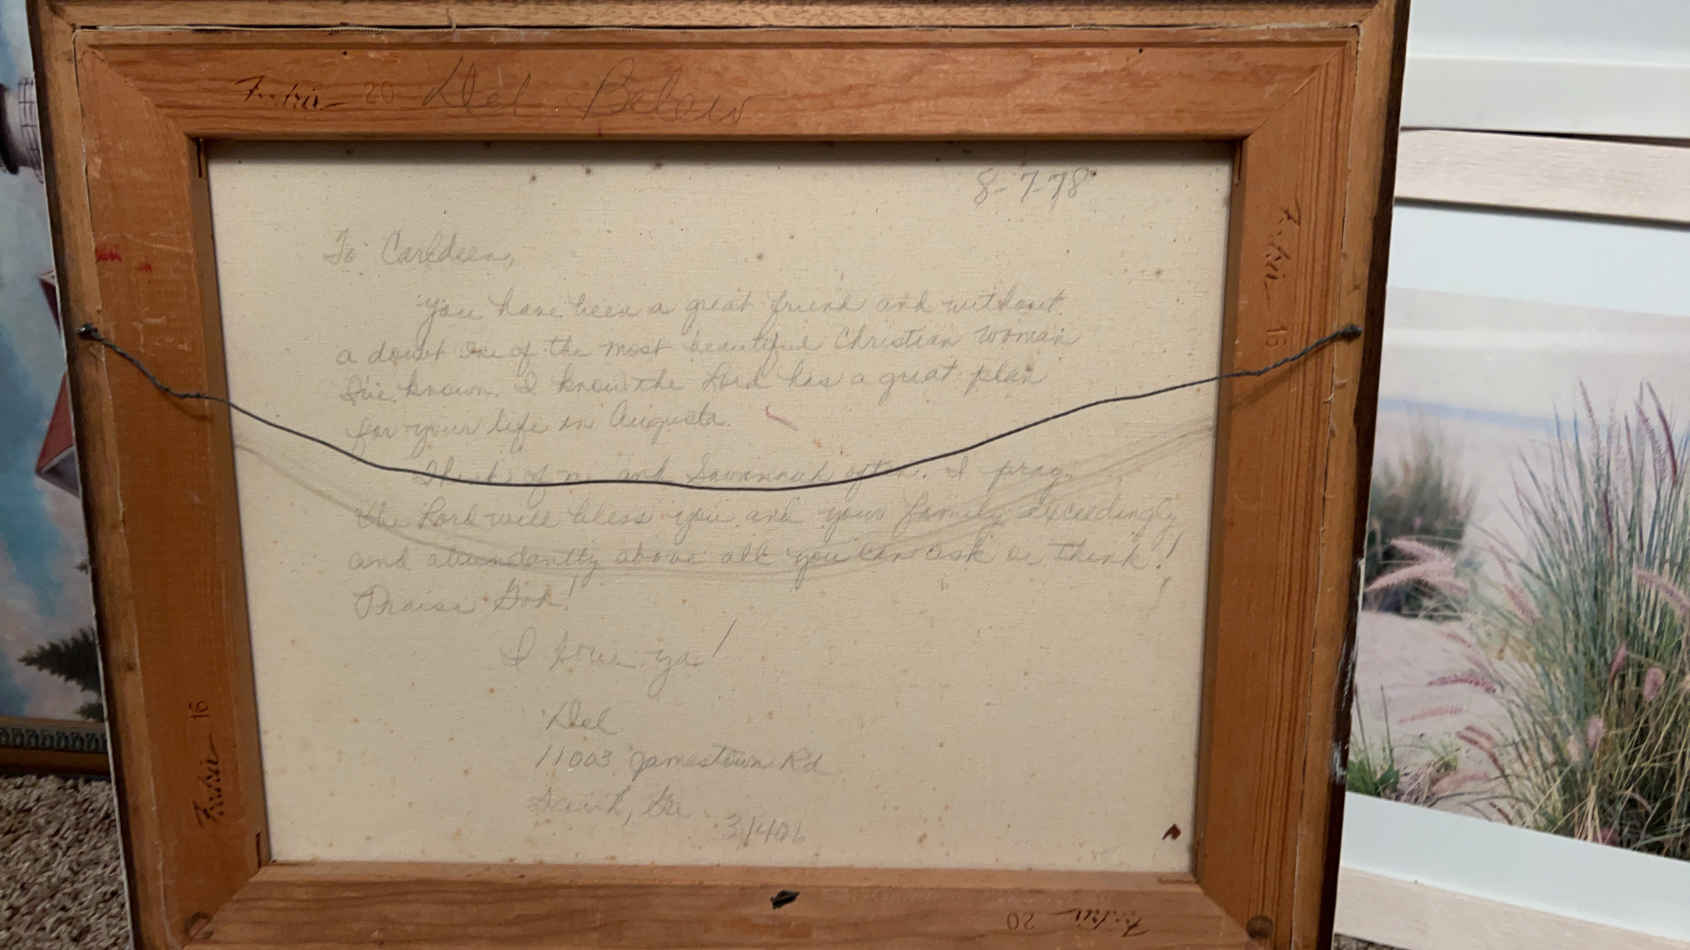 Fredrix 20 Del Below
8-7-78
To Carldeen,
You have been a great friend and without
a doubt one of the most beautiful Christian woman
I've known. I know the Lord has a great plan
for your life in Augusta.
Think of me and Savannah often. I pray
the Lord will bless you and your family exceedingly
and abundantly above all you can ask or think!
Praise God!
I love ya!
Del
11003 Jamestown Rd
Savnh, Ga.
31406
Fredrix 16
Fredrix 16
Fredrix 20